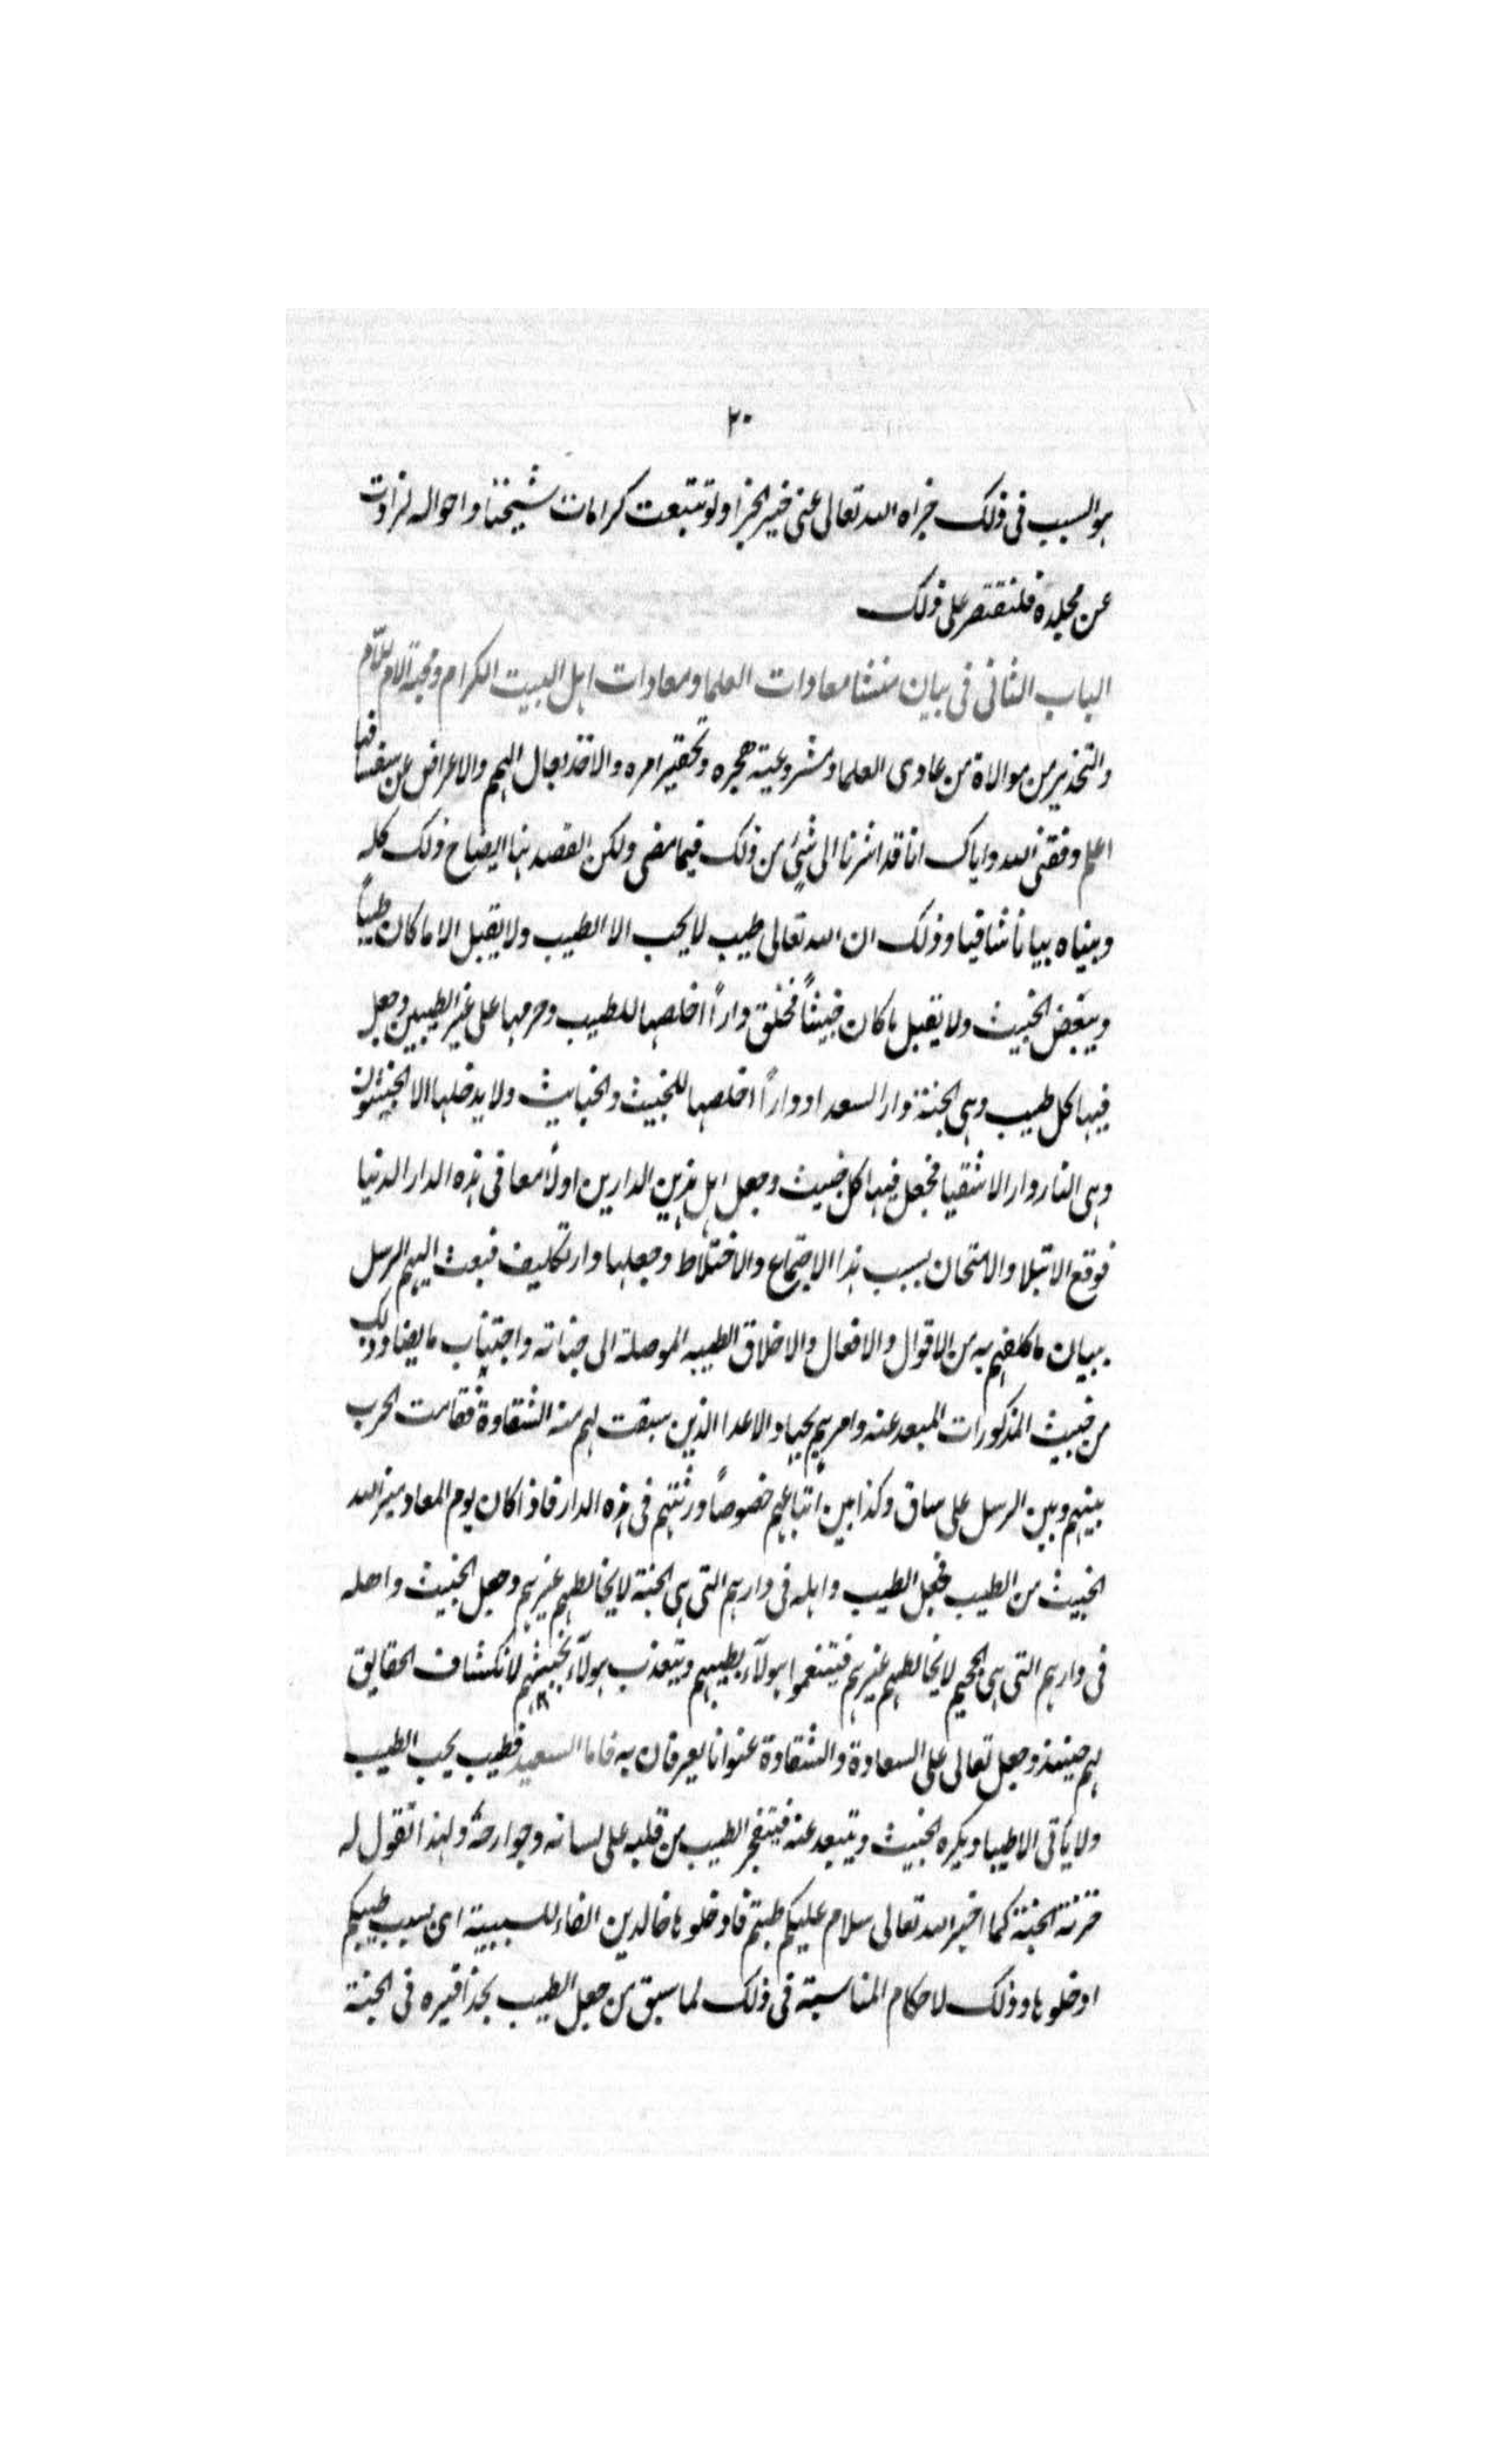 ٢٠
هو السبب فى ذلك جزاه الله تعالى عنى خير الجزا ولو تتبعت كرامات شيخنا واحواله لزادت
عن مجلده فلنقتصر على ذلك
الباب الثانى فى بيان منشا معادات العلما ومعادات اهل البيت الكرام ومحبة
والتحذير من موالاة من عادى العلما ومشروعية هجره وتحقير امره والاخذ بحال اليهم والاعراض عن
اعلم وفقنى الله واياك انا قد اشرنا الى شئ من ذلك فيما مضى ولكن القصد هنا ايضاح ذلك كله
وبيناه بياناً شافيا وذلك ان الله تعالى طيب لا يحب الا الطيب ولا يقبل الا ما كان طيباً
ويبغض الخبيث ولا يقبل ما كان خبيثاً فخلق داراً اخلصها للطيب وحرمها على غير الطيبين وجعل
فيها كل طيب وهى الجنة دار السعدا وداراً اخلصها للخبيث والخبايث ولا يدخلها الا الخبيثون
وهى النار دار الاشقيا فجعل فيها كل خبيث وجعل اهل هذين الدارين اولاً معا فى هذه الدار الدنيا
فوقع الابتلا والامتحان بسبب هذا الاجتماع والاختلاط وجعلها دار تكليف فبعث اليهم الرسل
ببيان ما كلفهم به من الاقوال والافعال والاخلاق الطيبه الموصلة الى جناته واجتناب ما يضاد ذلك
من خبيث المذكورات المبعد عنه وامرهم بجهاد الاعدا الذين سبقت لهم منه الشقاوة فقامت الحرب
بينهم وبين الرسل على ساق وكذا بين اتباعهم خصوصاً ورثتهم فى هذه الدار فاذا كان يوم المعاد ميز الله
الخبيث من الطيب فجعل الطيب واهله فى دارهم التى هى الجنة لا يخالطهم غيرهم وجعل الخبيث واهله
فى دارهم التى هى الجحيم لا يخالطهم غيرهم فيتنعموا هولآء بطيبهم ويتعذب هولآء بخبيثهم لانكشاف الحقايق
لهم حينئذ وجعل تعالى على السعادة والشقاوة عنوانا يعرفان به فاما السعيد فطيب يحب الطيب
ولا يأتى الا طيبا ويكره الخبيث ويتبعد عنه فيتفجر الطيب من قلبه على لسانه وجوارحه ولهذا تقول له
خزنة الجنة كما اخبر الله تعالى سلام عليكم طبتم فادخلوها خالدين الفاء للسببية اى بسبب طيبكم
ادخلوها وذلك لاحكام المناسبة فى ذلك لما سبق من جعل الطيب بحذافيره فى الجنة